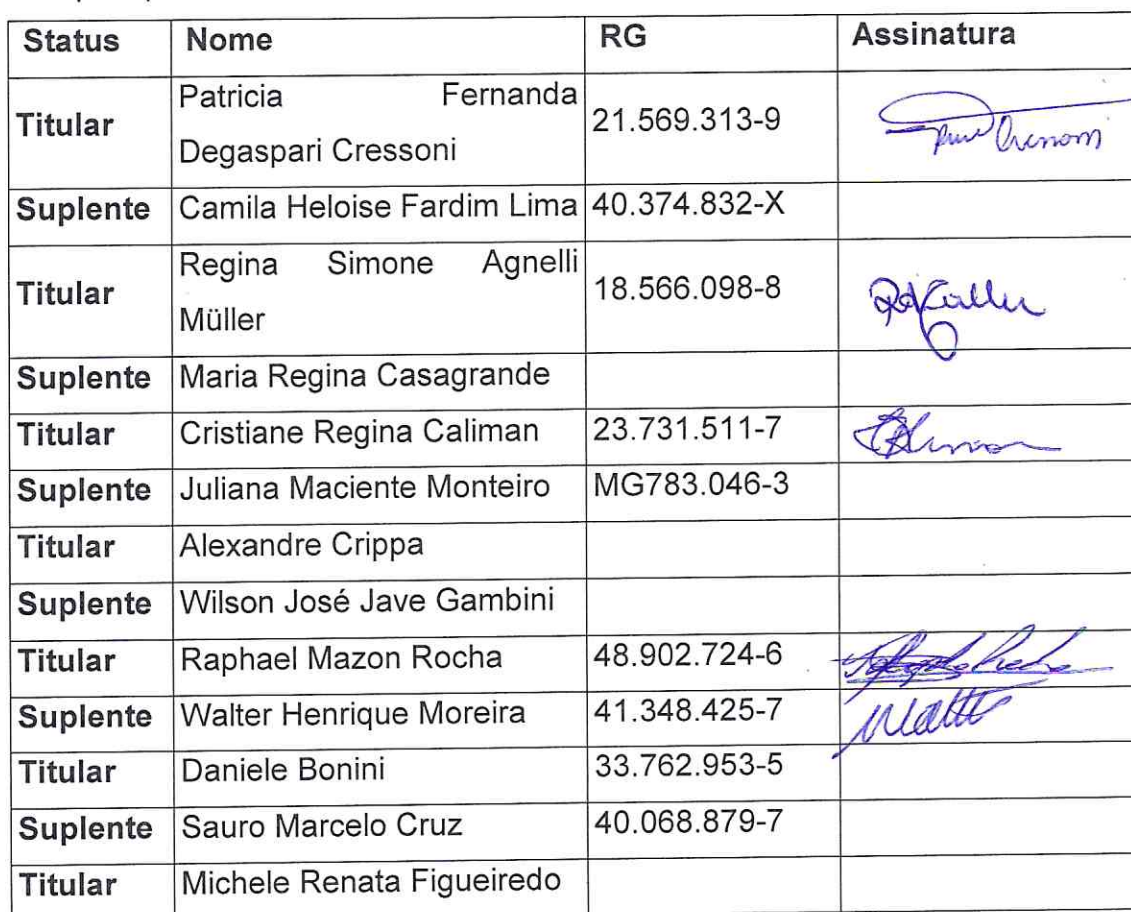 Status Nome RG Assinatura
Patricia Fernanda
Titular 21.569.313-9
Degaspari Cressoni
Suplente Camila Heloise Fardim Lima 40.374.832-X
Regina Simone Agnelli
Titular 18.566.098-8
Müller
Suplente Maria Regina Casagrande
Titular Cristiane Regina Caliman 23.731.511-7
Suplente Juliana Maciente Monteiro MG783.046-3
Titular Alexandre Crippa
Suplente Wilson José Jave Gambini
Titular Raphael Mazon Rocha 48.902.724-6
Suplente Walter Henrique Moreira 41.348.425-7
Titular Daniele Bonini 33.762.953-5
Suplente Sauro Marcelo Cruz 40.068.879-7
Titular Michele Renata Figueiredo